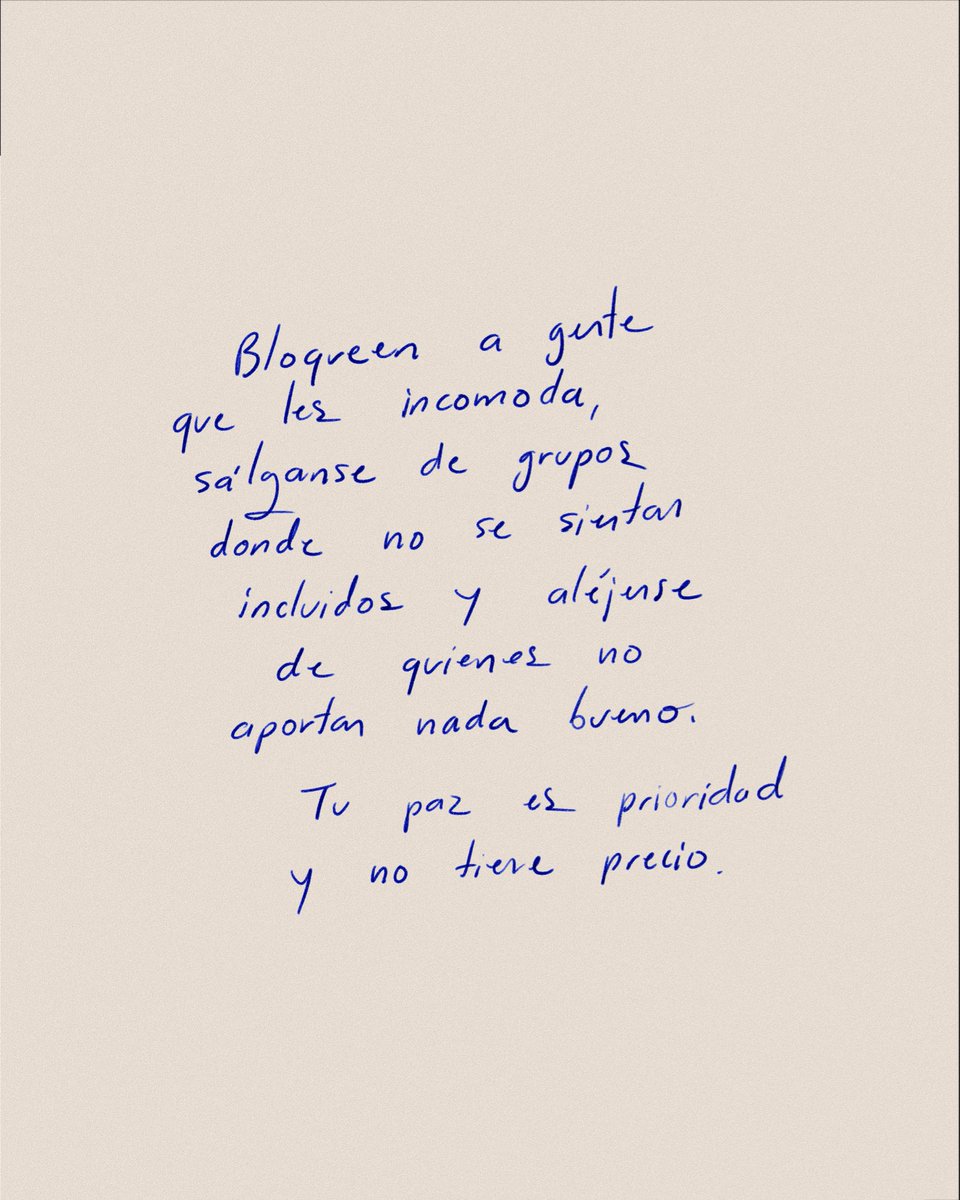 Bloqueen a gente
que les incomoda,
sálganse de grupos
donde no se sientan
incluidos y aléjense
de quienes no
aportan nada bueno.
Tu paz es prioridad
y no tiene precio.